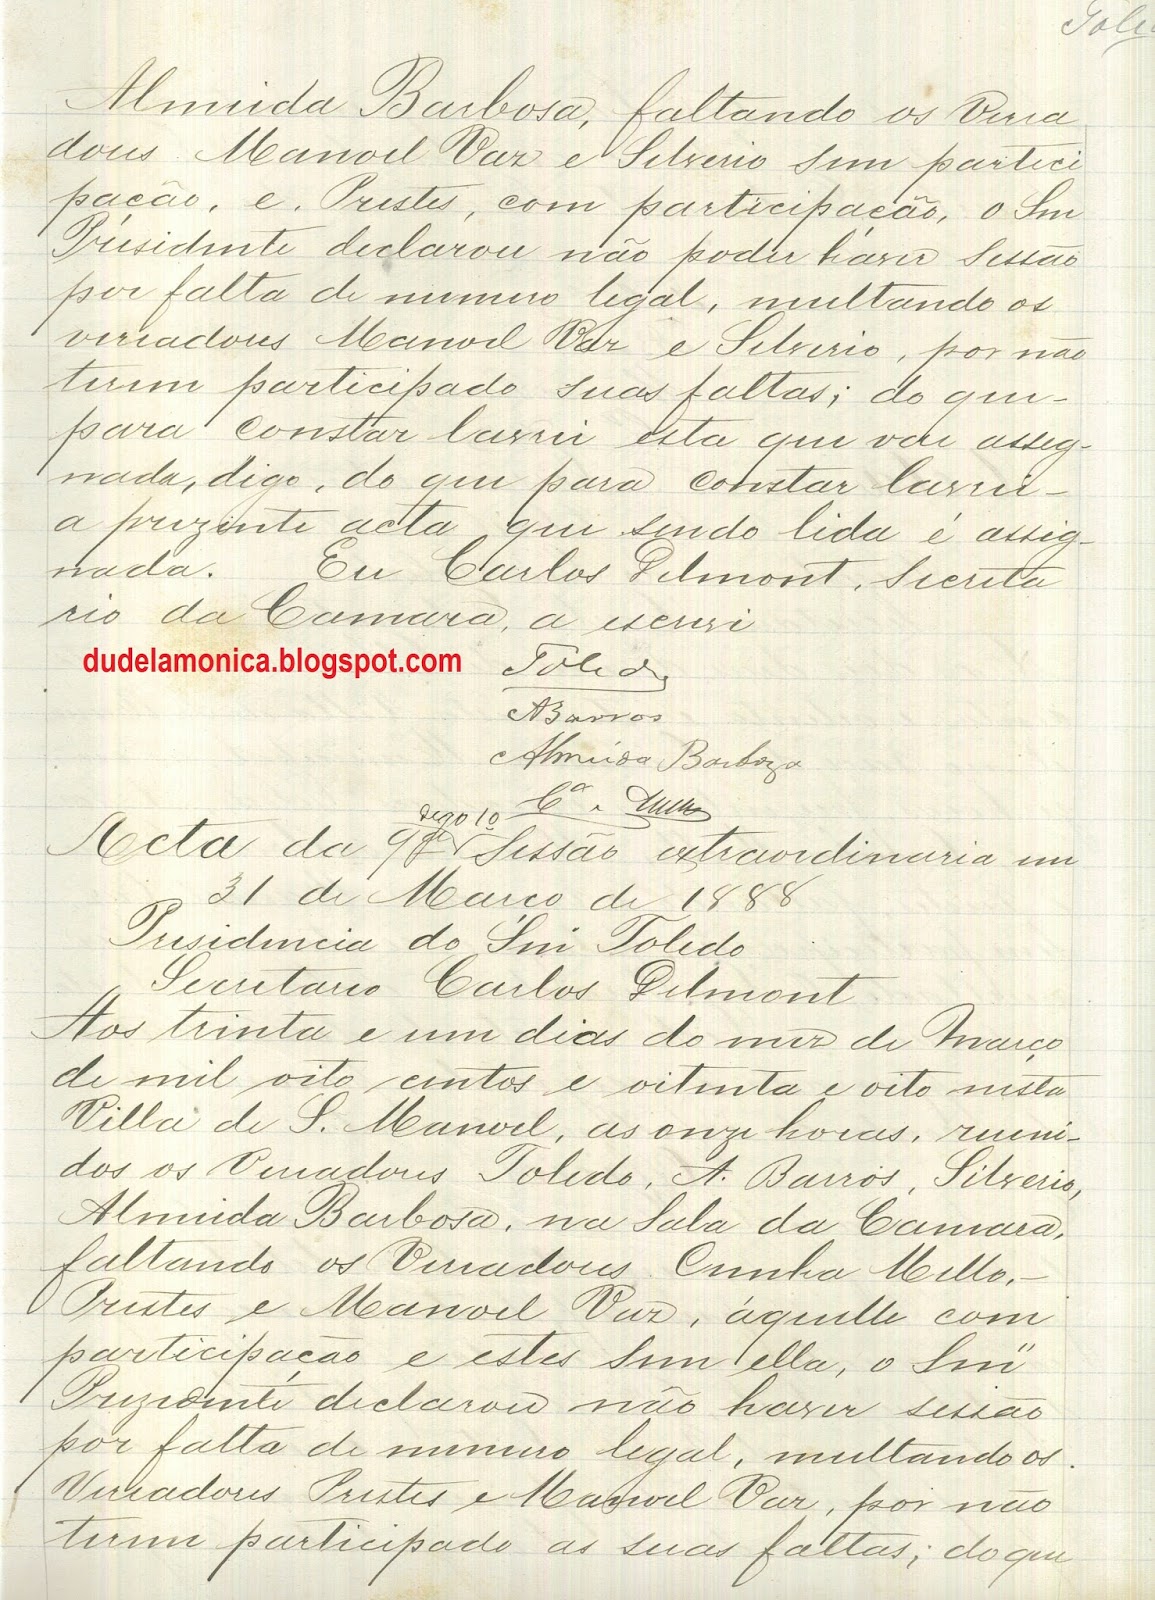 Almeida Barbosa, faltando os Verea
dores Manoel Vaz e Silverio sem partici
pação, e Prestes, com participação, o Snr
Presidente declarou não poder haver Sessão
por falta de numero legal, multando os
vereadores Manoel Vaz e Silverio, por não
terem participado suas faltas; do que-
para constar lavrei esta que vae asseg-
nada, digo, do que para constar lavrei-
a prezente acta que sendo lida é assig-
nada. Eu Carlos Delmont, Secreta
rio da Camara, a escrevi
dudelamonica.blogspot.com
Toledo
A Barros
Almeida Barboza
digo 10
Acta da 9ª Sessão extraordinaria em
31 de Março de 1888
Presidencia do Snr Toledo
Secretario Carlos Delmont
Aos trinta e um dias do mez de Março
de mil oito centos e oitenta e oito nesta
Villa de S. Manoel, as onze horas, reuni-
dos os Vereadores Toledo, A. Barros, Silverio,
Almeida Barbosa, na Sala da Camara,
faltando os Vereadores Cunha Mello,-
Prestes e Manoel Vaz, áquelle com
participação e estes sem ella, o Snr
Prezidente declarou não haver sessão
por falta de numero legal, multando os
Vereadores Prestes e Manoel Vaz, por não
terem participado as suas faltas; do que